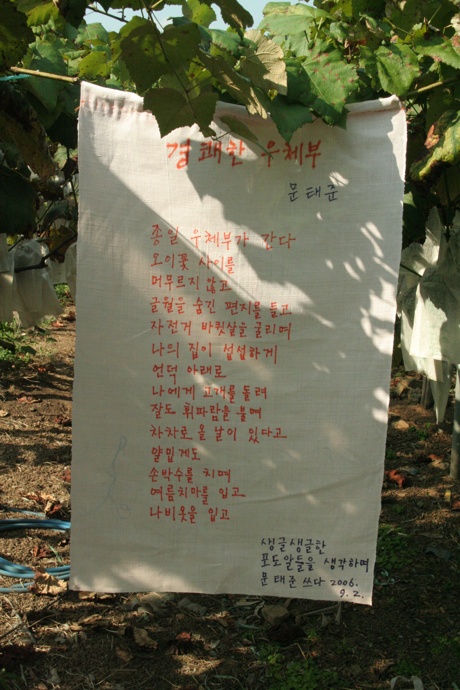 경쾌한 우체부
문태준
종일 우체부가 간다
오이꽃 사이를
머무르지 않고
글월을 숨긴 편지를 들고
자전거 바큇살을 굴리며
나의 집이 섭섭하게
언덕 아래로
나에게 고개를 돌려
잘도 휘파람을 불며
차차로 올 날이 있다고
얄밉게도
손박수를 치며
여름치마를 입고
나비옷을 입고
생글생글한
포도알들을 생각하며
문태준 쓰다 2006.
9. 2.